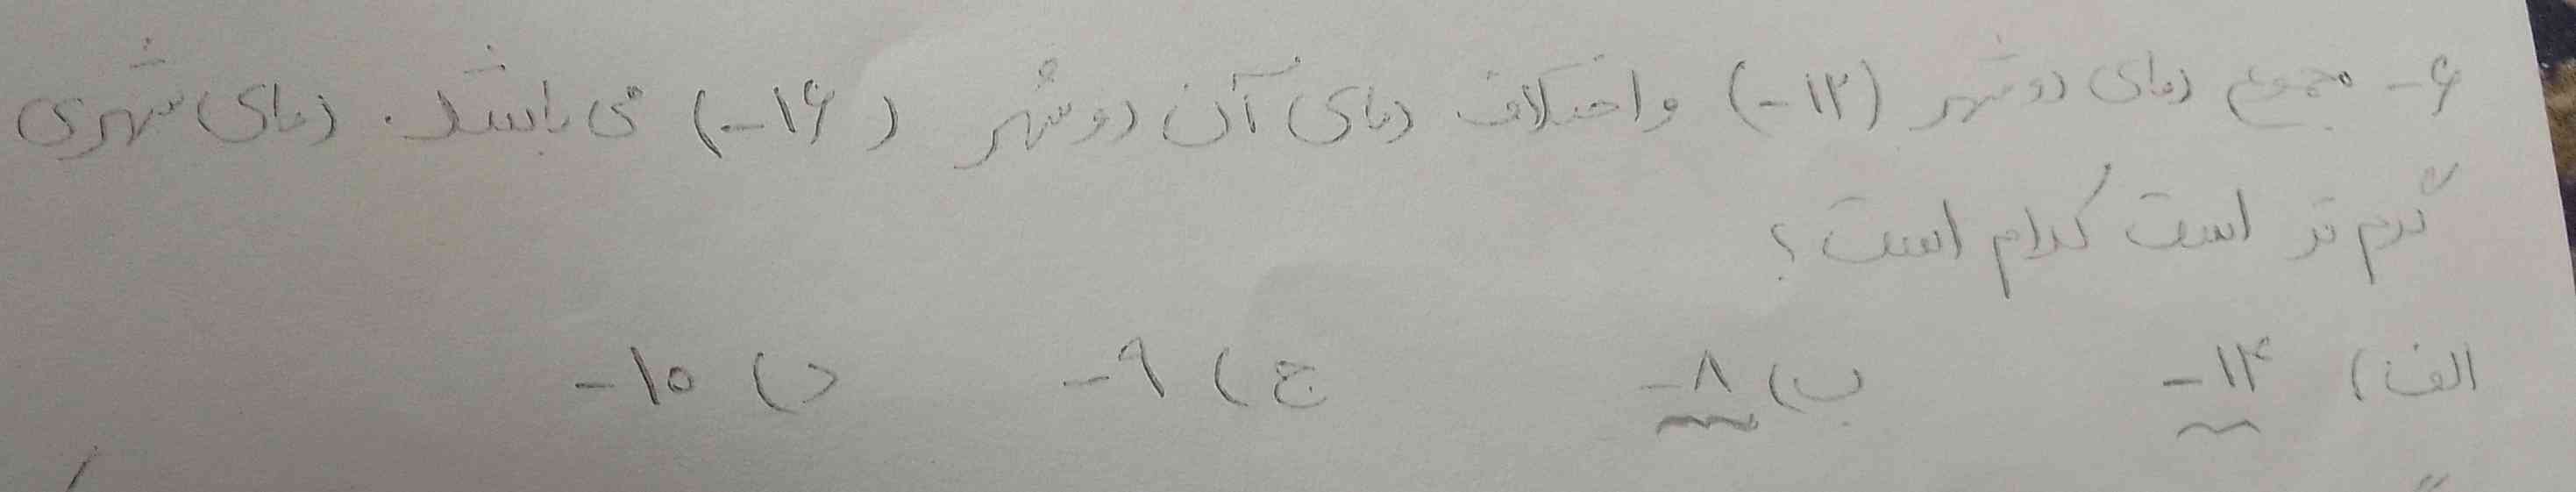 ۶- مجموع دمای دو شهر (۱۲-) و اختلاف دمای آن دو شهر (۱۶-) می باشد. دمای شهری
گرم تر است کدام است؟
الف) ۱۴- ب) ۸- ج) ۹- د) ۱۰-